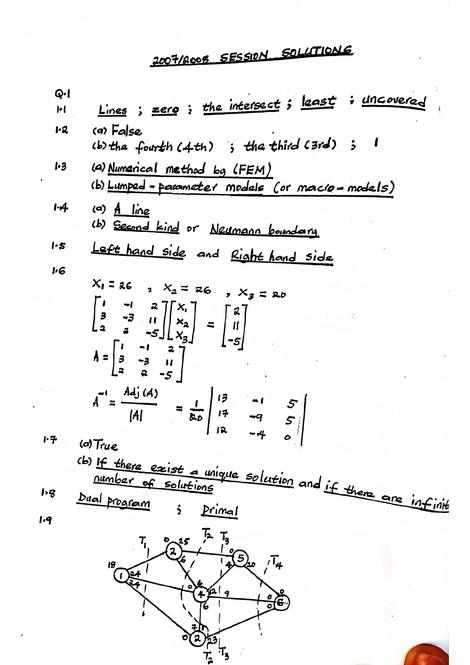 2007/2008 SESSION SOLUTIONS
Q.1
1.1 Lines ; zero ; the intersect ; least ; uncovered
1.2 (a) False
(b) the fourth (4th) ; the third (3rd) ; 1
1.3 (a) Numerical method by (FEM)
(b) Lumped-parameter models (or macro-models)
1.4 (a) A line
(b) Second kind or Neumann boundary
1.5 Left hand side and Right hand side
1.6
X1 = 26 , X2 = 26 , X3 = 20
[1 -1 2] [X1] [2]
[3 -3 11] [X2] = [11]
[2 2 -5] [X3] [-5]
A = [1 -1 2]
[3 -3 11]
[2 2 -5]
A⁻¹ = Adj (A) / |A| = 1/20 | 13 -1 5 |
| 17 -9 5 |
| 12 -4 0 |
1.7 (a) True
(b) If there exist a unique solution and if there are infinit
number of solutions
1.8 Dual program ; primal
1.9
T1 T2 T3 T4
0 2 25 6 0 5 20
18 1 24 24
0 4 6 6 12 4 9 0 0
0 2 7 1 23
T2 T3